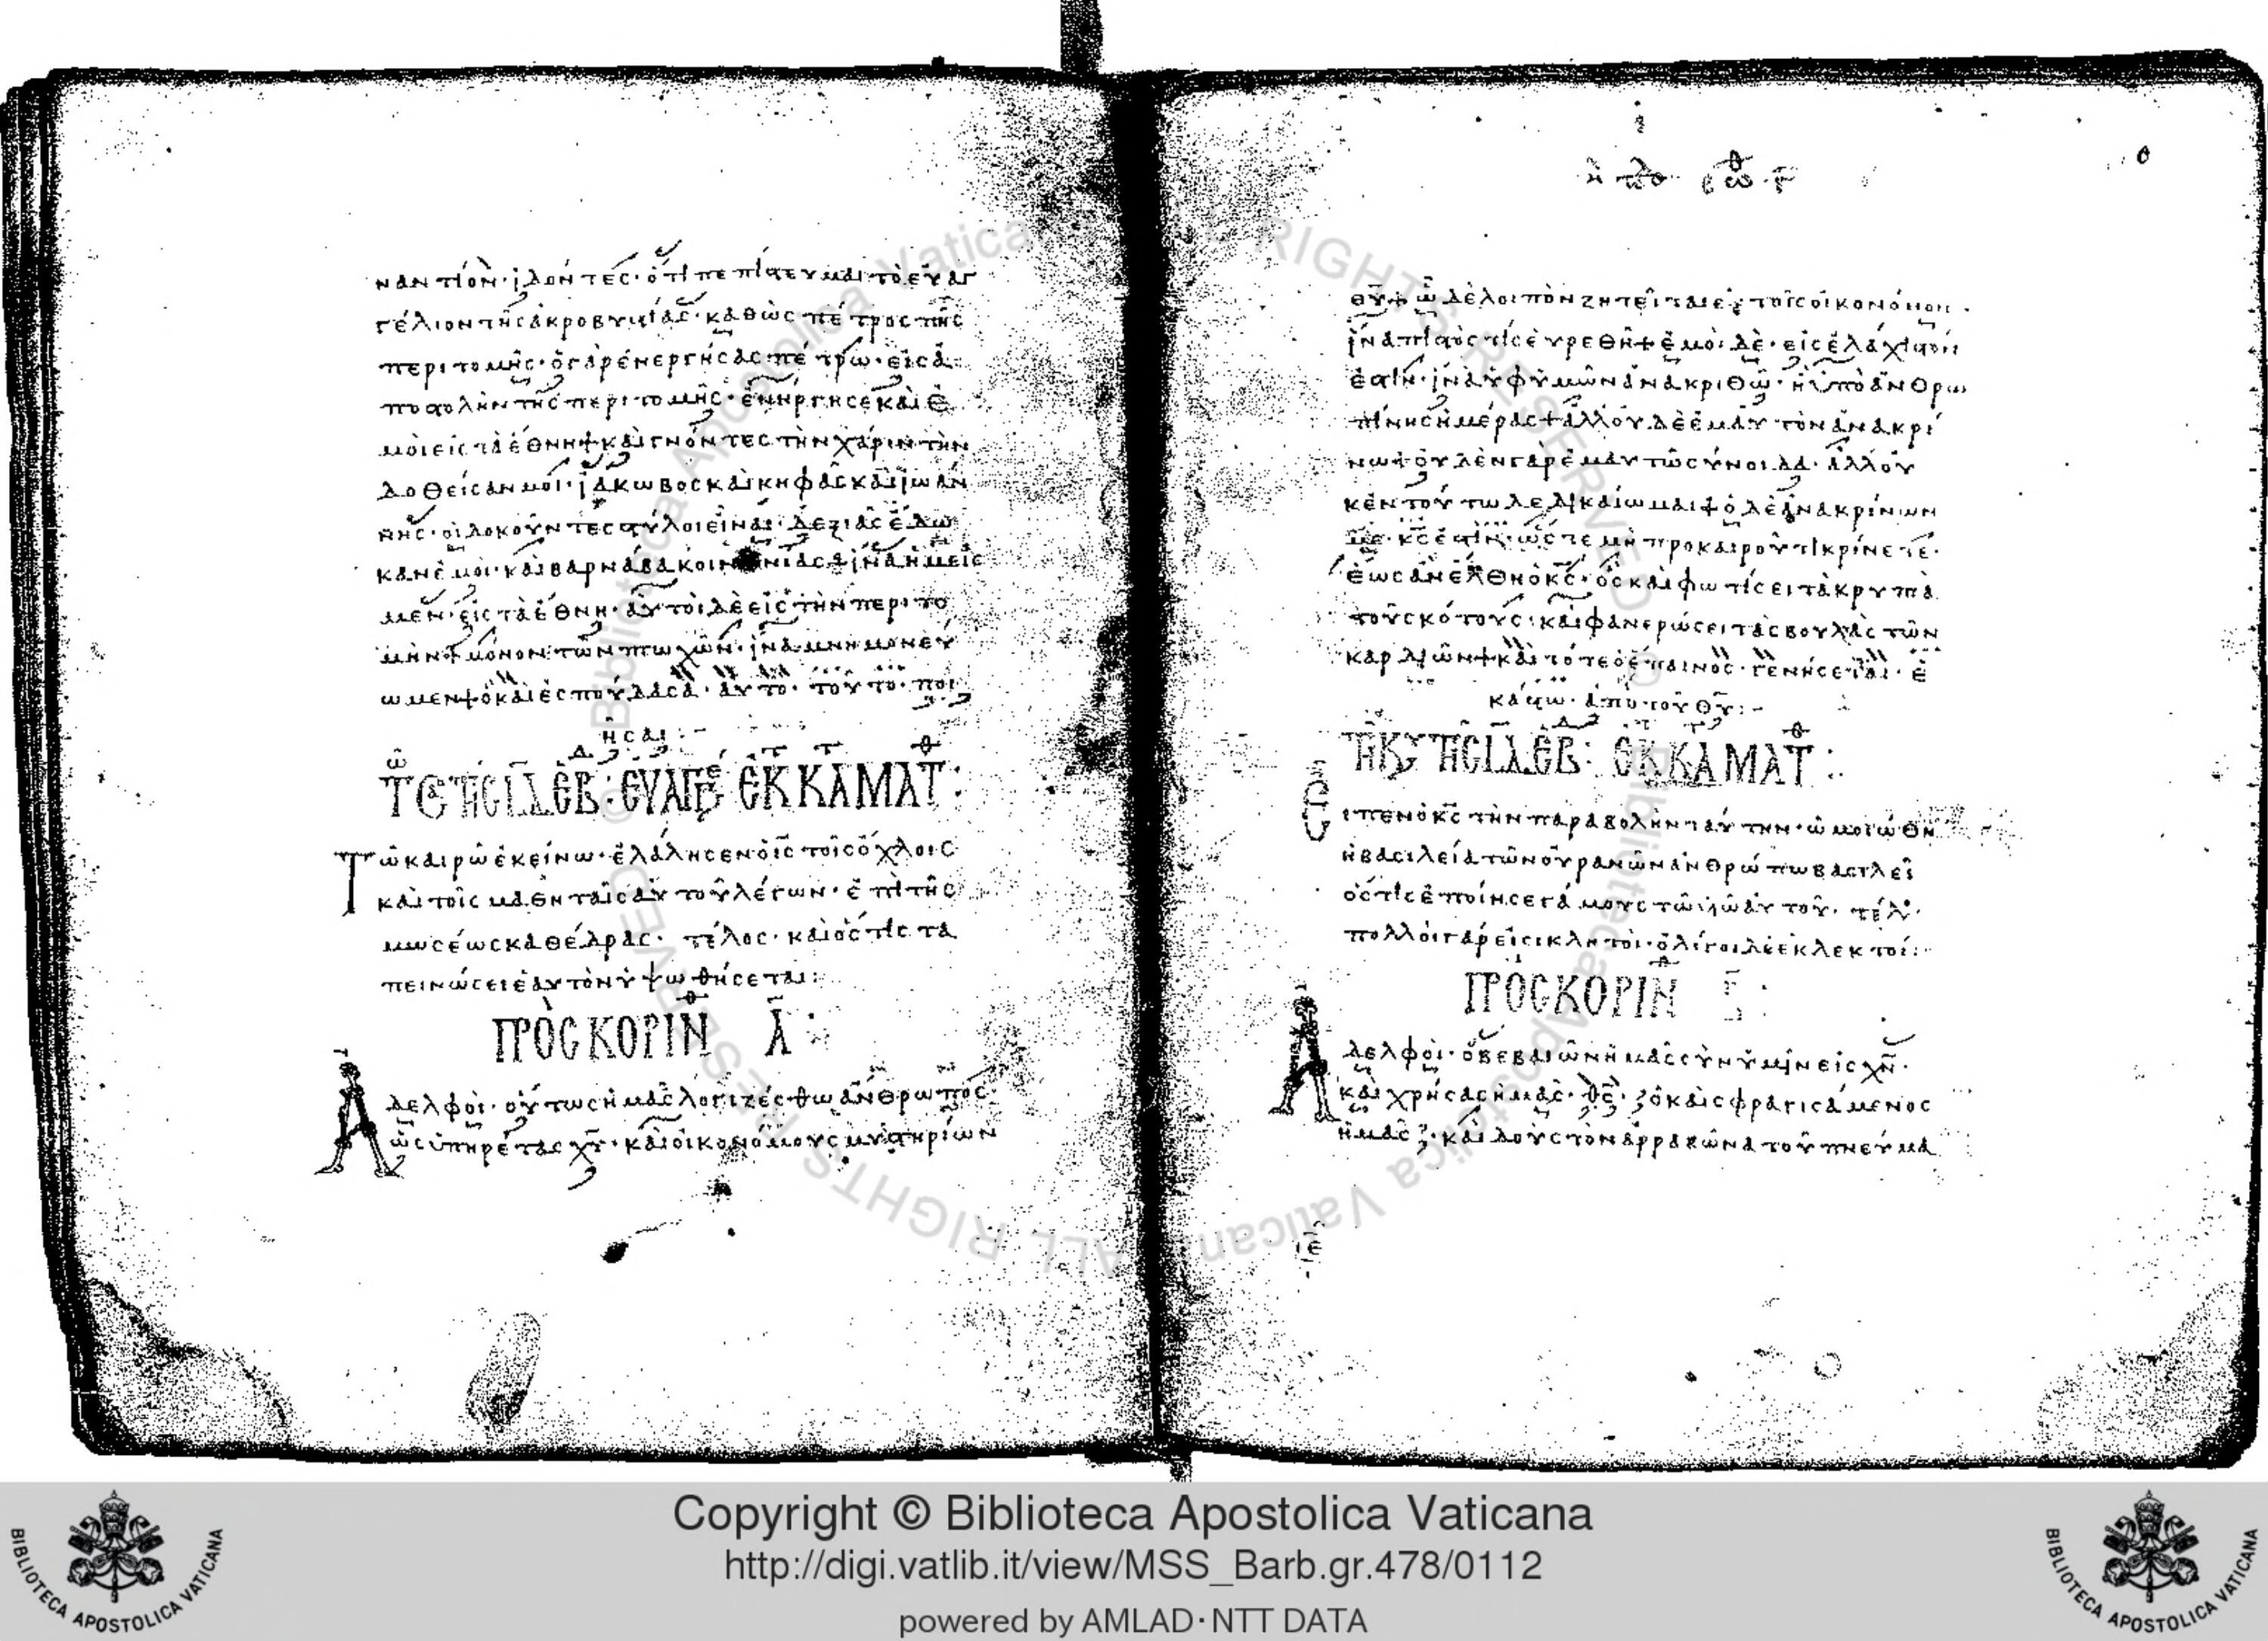 ναντίον· ἰδόντες· ὅτι πεπίστευμαι τὸ εὐαγ
γέλιον τῆς ἀκροβυστίας· καθὼς πέτρος τῆς
περιτομῆς· ὁ γὰρ ἐνεργήσας πέτρω· εἰς ἀ
ποστολὴν τῆς περιτομῆς· ἐνήργησε καὶ ἐ
μοὶ εἰς τὰ ἔθνη + καὶ γνόντες τὴν χάριν τὴν
δοθεῖσαν μοι· ἰάκωβος καὶ κηφᾶς καὶ ἰωάν
νης· οἱ δοκοῦντες στύλοι εἶναι· δεξιὰς ἔδω
καν ἐμοὶ· καὶ βαρνάβα κοινωνίας + ἵνα ἡμεῖς
μὲν· εἰς τὰ ἔθνη· αὐτοὶ δὲ εἰς τὴν περιτο
μήν + μόνον τῶν πτωχῶν· ἵνα μνημονεύ
ωμεν + ὃ καὶ ἐσπούδασα· αὐτὸ· τοῦτο· ποι
ῆσαι :-
Τ CΕ ΤΗC ΙΔ ΕΒ : ΕΥΑΓΓΕ ΕΚ Κ ΑΜΑΤΘ :
Τῶ καιρῶ ἐκείνω· ἐλάλησεν ὁ ἰς τοῖς ὄχλοις
καὶ τοῖς μαθηταῖς αὐτοῦ λέγων· ἐπὶ τῆς
μωσέως καθέδρας· τέλος· καὶ ὅστις τα
πεινώσει ἑαυτὸν ὑψωθήσεται :
ΠΡῸC ΚΟΡΙΝΘ Α :
Ἀδελφοὶ· οὕτως ἡμᾶς λογιζέσθω ἄνθρωπος·
ὡς ὑπηρέτας χυ· καὶ οἰκονόμους μυστηρίων
θυ + ὧ δὲ λοιπὸν ζητεῖται ἐν τοῖς οἰκονόμοις·
ἵνα πιστός τις εὑρεθῆ + ἐμοὶ δὲ· εἰς ἐλάχιστόν
ἐστιν· ἵνα ὑφ' ὑμῶν ἀνακριθῶ· ἢ ὑπὸ ἀνθρω
πίνης ἡμέρας + ἀλλ' οὐδὲ ἐμαυτὸν ἀνακρί
νω + οὐδὲν γὰρ ἐμαυτῶ σύνοιδα· ἀλλ' οὐ
κ ἐν τούτω δεδικαίωμαι + ὁ δὲ ἀνακρίνων
με· κς ἐστιν· ὥστε μὴ πρὸ καιροῦ τι κρίνετε·
ἕως ἂν ἔλθη ὁ κς· ὃς καὶ φωτίσει τὰ κρυπτὰ
τοῦ σκότους· καὶ φανερώσει τὰς βουλὰς τῶν
καρδιῶν + καὶ τότε ὁ ἔπαινος· γενήσεται· ἑ
κάστω· ἀπὸ τοῦ θυ :-
ΤΗ ΚΥ ΤΗC ΙΔ ΕΒ : ΕΚ Κ ΑΜΑΤΘ :
Εἶπεν ὁ κς τὴν παραβολὴν ταύτην· ὡμοιώθη
ἡ βασιλεία τῶν οὐρανῶν ἀνθρώπω βασιλεῖ
ὅστις ἐποίησε γάμους τῶ υἱῶ αὐτοῦ· τέλ·
πολλοὶ γάρ εἰσι κλητοὶ· ὀλίγοι δὲ ἐκλεκτοί :
ΠΡῸC ΚΟΡΙΝΘ
Ἀδελφοὶ· ὁ βεβαιῶν ἡμᾶς σὺν ὑμῖν εἰς χν·
καὶ χρήσας ἡμᾶς· θς· ὁ καὶ σφραγισάμενος
ἡμᾶς· καὶ δοὺς τὸν ἀρραβῶνα τοῦ πνεύμα
Copyright © Biblioteca Apostolica Vaticana
http://digi.vatlib.it/view/MSS_Barb.gr.478/0112
powered by AMLAD·NTT DATA
BIBLIOTECA APOSTOLICA VATICANA
BIBLIOTECA APOSTOLICA VATICANA